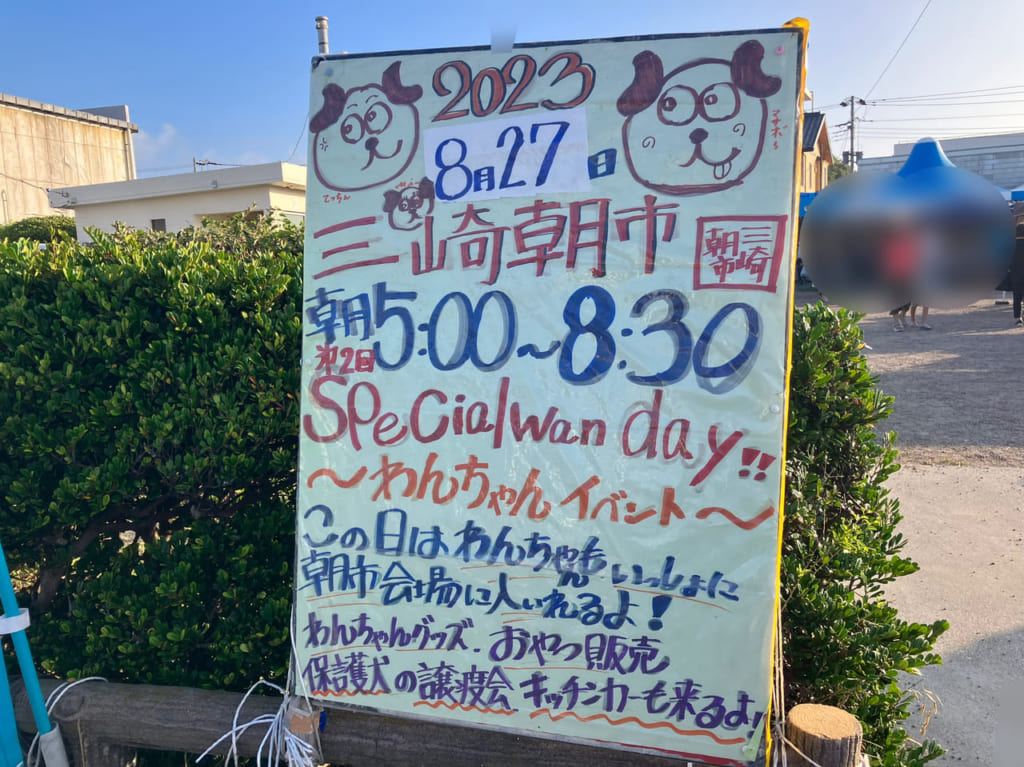 2023
8月27日
てっちん
三崎朝市
三崎朝市
朝5:00~8:30
第2回
Special wan day!!
～わんちゃんイベント～
この日はわんちゃんもいっしょに
朝市会場に入れるよ!
わんちゃんグッズ.おやつ販売
保護犬の譲渡会 キッチンカーも来るよ!